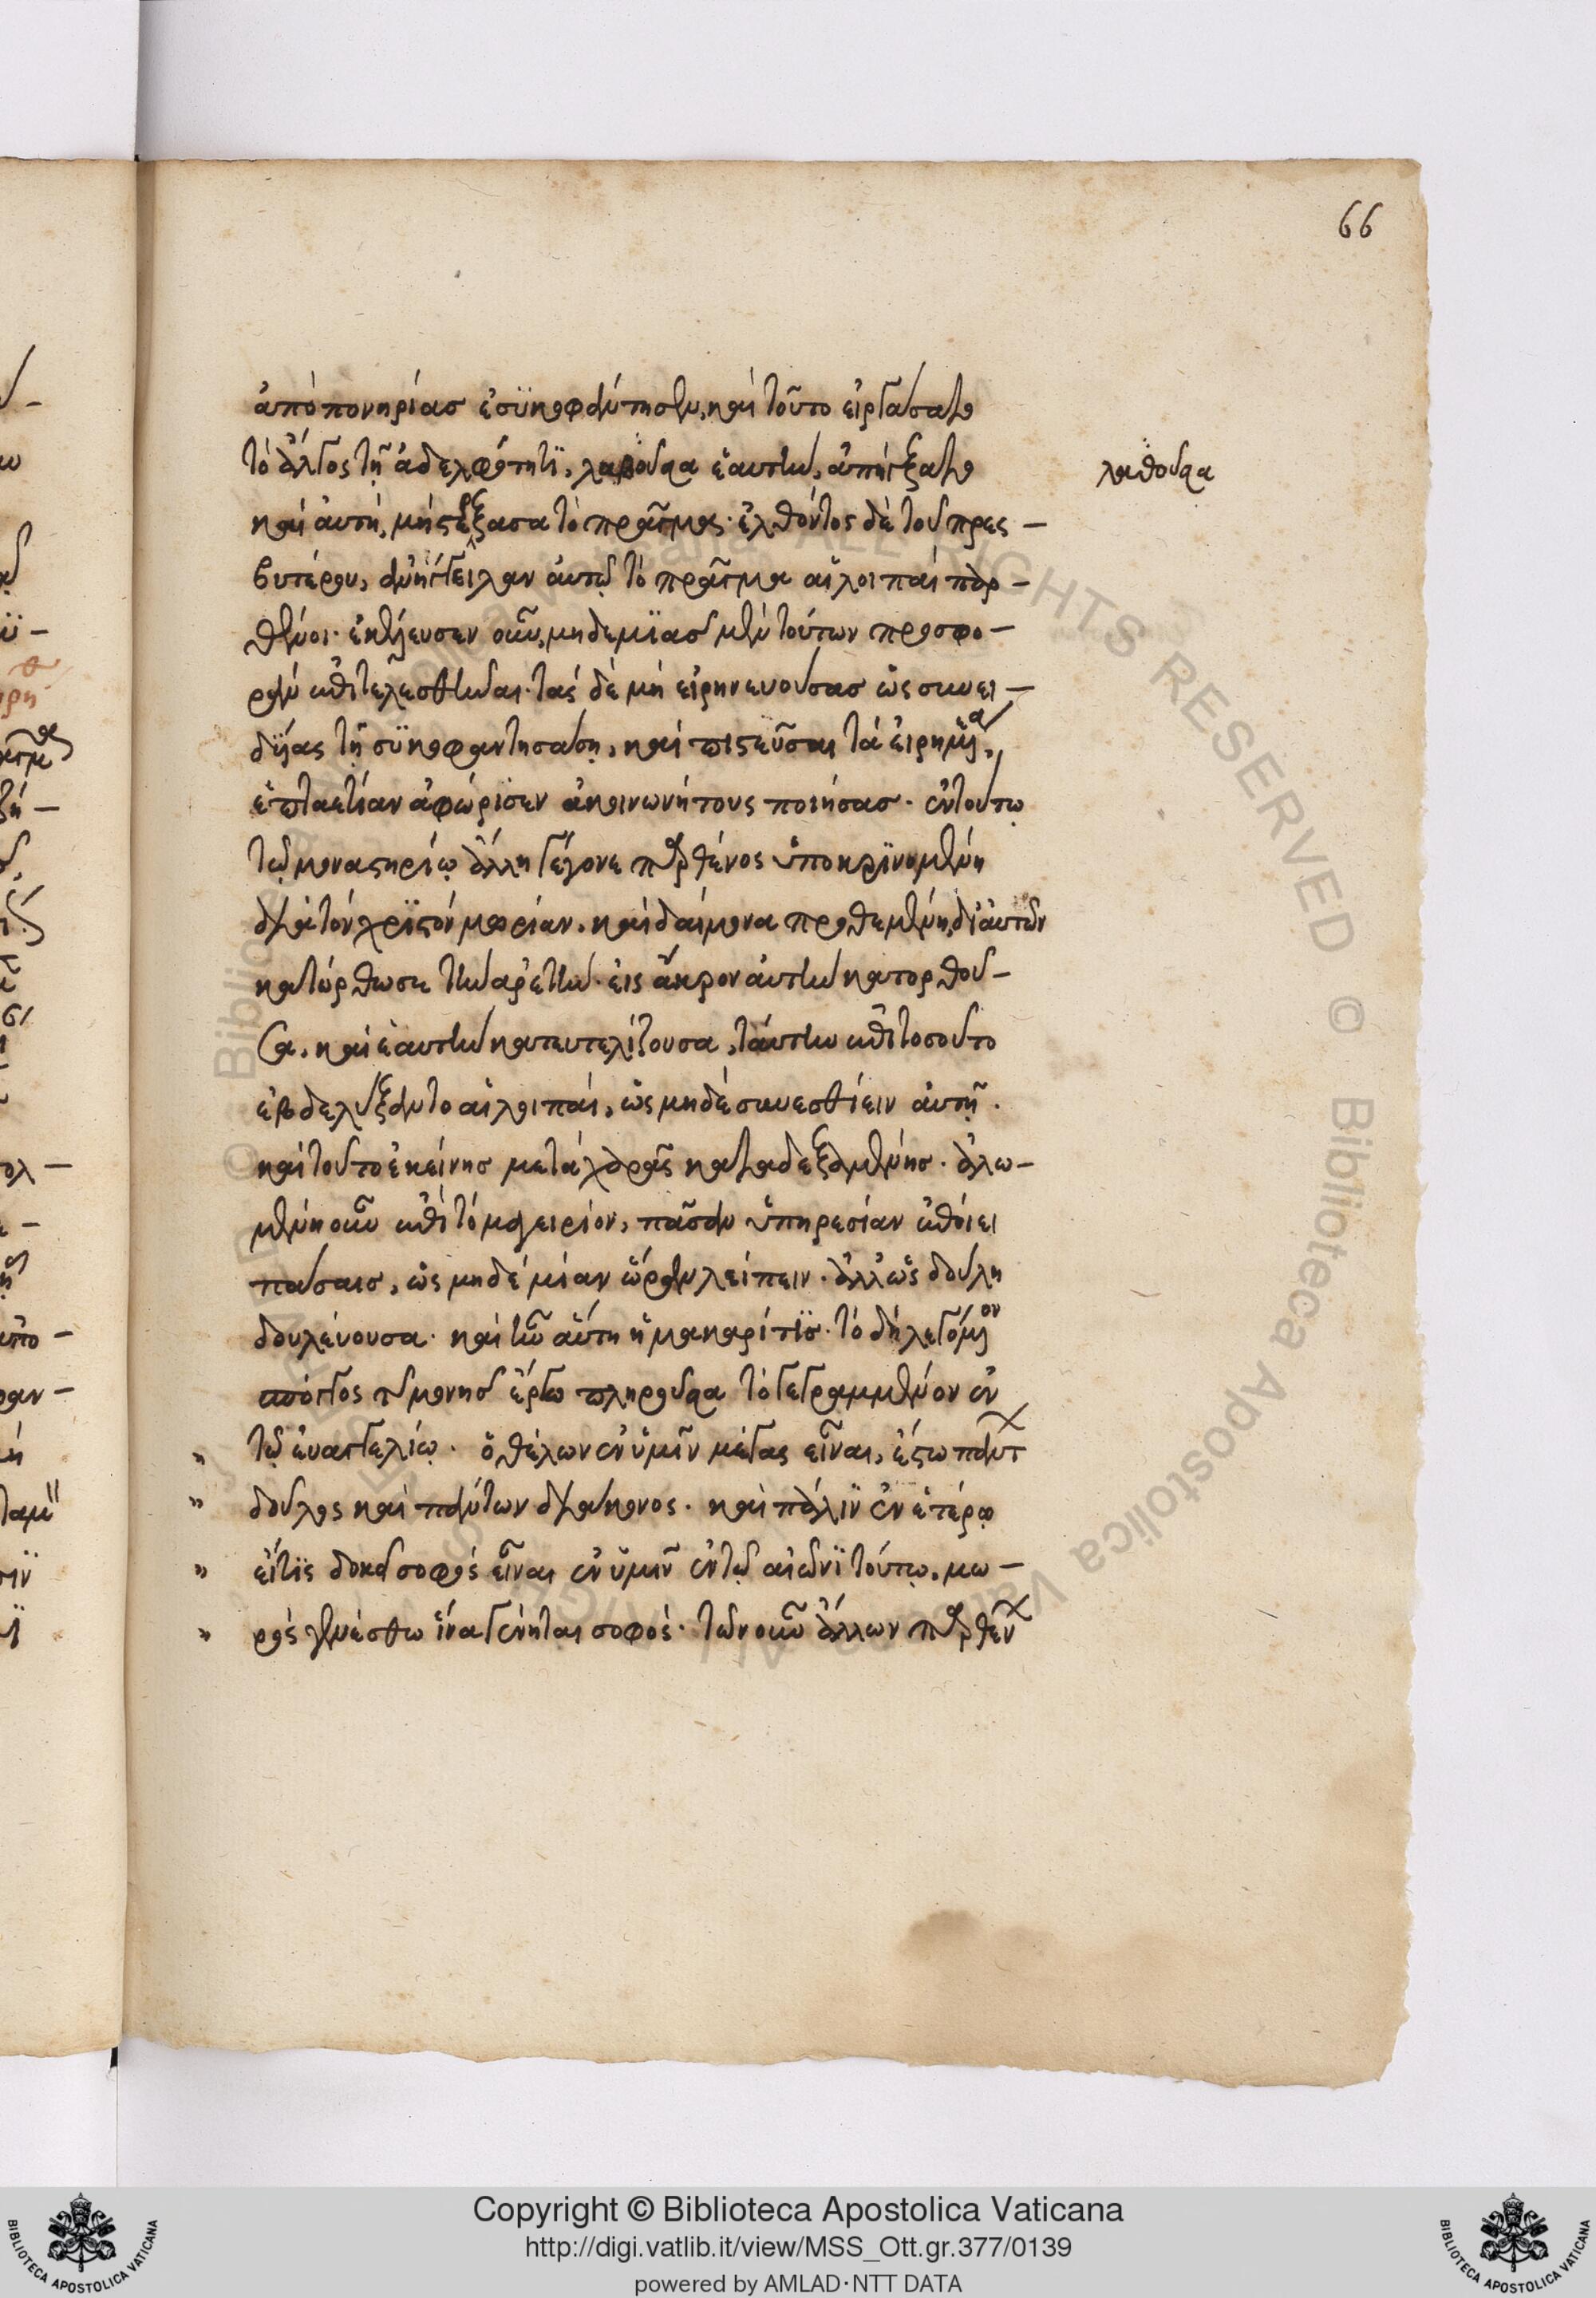 66
ἀπὸ πονηρίας ἐσϋκοφάντησεν, καὶ τοῦτο εἰργάσατο
τὸ ἄλγος τῇ ἀδελφότητϊ, λαβοῦσα ἑαυτὴν, ἀπήγξατο
λαθοῦσα
καὶ αὐτὴ, μὴ στέξασα τὸ πρᾶγμα· ἐλθόντος δὲ τοῦ πρεσ-
βυτέρου, ἀνήγγειλαν αὐτῷ τὸ πρᾶγμα αἱ λοιπαὶ παρ-
θένοι· ἐκέλευσεν οὖν, μηδεμϊᾶς μὲν τούτων προσφο-
ρὰν ἐπιτελεσθῆναι· τὰς δὲ μὴ εἰρηνευούσας ὡς συνει-
δυίας τῇ συκοφαντησάσῃ, καὶ πιστεῦσαι τὰ εἰρημένα,
ἑπταετίαν ἀφώρισεν ἀκοινωνήτους ποιήσας· ἐν τούτῳ
τῷ μοναστηρίῳ ἄλλη γέγονε παρθένος ὑποκρϊνομένη
διὰ τὸν χρϊστὸν μωρίαν· καὶ δαίμονα προθεμένη, δι' αὐτῶν
κατώρθωσε τὴν ἀρετὴν· εἰς ἄκρον αὐτὴν κατορθοῦ-
σα, καὶ ἑαυτὴν κατευτελίζουσα, ταύτην ἐπὶ τοσοῦτο
ἐβδελύξαντο αἱ λοιπαὶ, ὡς μηδὲ συνεσθίειν αὐτῇ·
καὶ τοῦτο ἐκείνης μετὰ χαρᾶς καταδεξαμένης· ἀλω-
μένη οὖν ἐπὶ τὸ μαγειρίον, πᾶσαν ὑπηρεσίαν ἐποίει
πάσαις, ὡς μηδὲ μίαν ὥραν λείπειν· ἀλλ' ὡς δούλη
δουλεύουσα· καὶ ἦν αὕτη ἡ μακαρίτϊς· τὸ δὴ λεγόμενον
σπόγγος τῆς μονῆς ἔργῳ πληροῦσα τὸ γεγραμμένον ἐν
τῷ εὐαγγελίῳ· ὁ θέλων ἐν ὑμῖν μέγας εἶναι, ἔστω πάντων
δοῦλος καὶ πάντων διάκονος· καὶ πάλϊν ἐν ἑτέρῳ
εἴ τϊς δοκεῖ σοφὸς εἶναι ἐν ὑμῖν ἐν τῷ αἰῶνϊ τούτῳ, μω-
ρὸς γενέσθω ἵνα γένηται σοφός· τῶν οὖν ἄλλων παρθένων
Copyright © Biblioteca Apostolica Vaticana
http://digi.vatlib.it/view/MSS_Ott.gr.377/0139
powered by AMLAD·NTT DATA